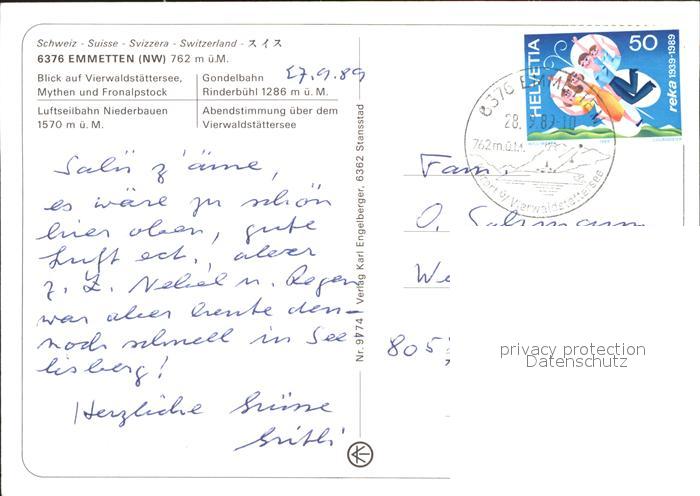 Schweiz - Suisse - Svizzera - Switzerland - スイス
6376 EMMETTEN (NW) 762 m ü.M.
Blick auf Vierwaldstättersee,
Mythen und Fronalpstock
Gondelbahn
Rinderbühl 1286 m ü. M.
Luftseilbahn Niederbauen
1570 m ü. M.
Abendstimmung über dem
Vierwaldstättersee
27.9.89
Salü z'äme,
es wäre zu schön
hier oben, gute
Luft ect. aber
z. Z. Nebel u. Regen
war aber heute den-
noch schnell in See
lisberg!
Herzliche Grüsse
Gritli
Nr. 9774 Verlag Karl Engelberger, 6362 Stansstad
HELVETIA
50
reka 1939-1989
6376 EMMETTEN
28.9.89-10
762 m ü.M.
Vierwaldstättersee
Fam.
O.
We
805
privacy protection
Datenschutz